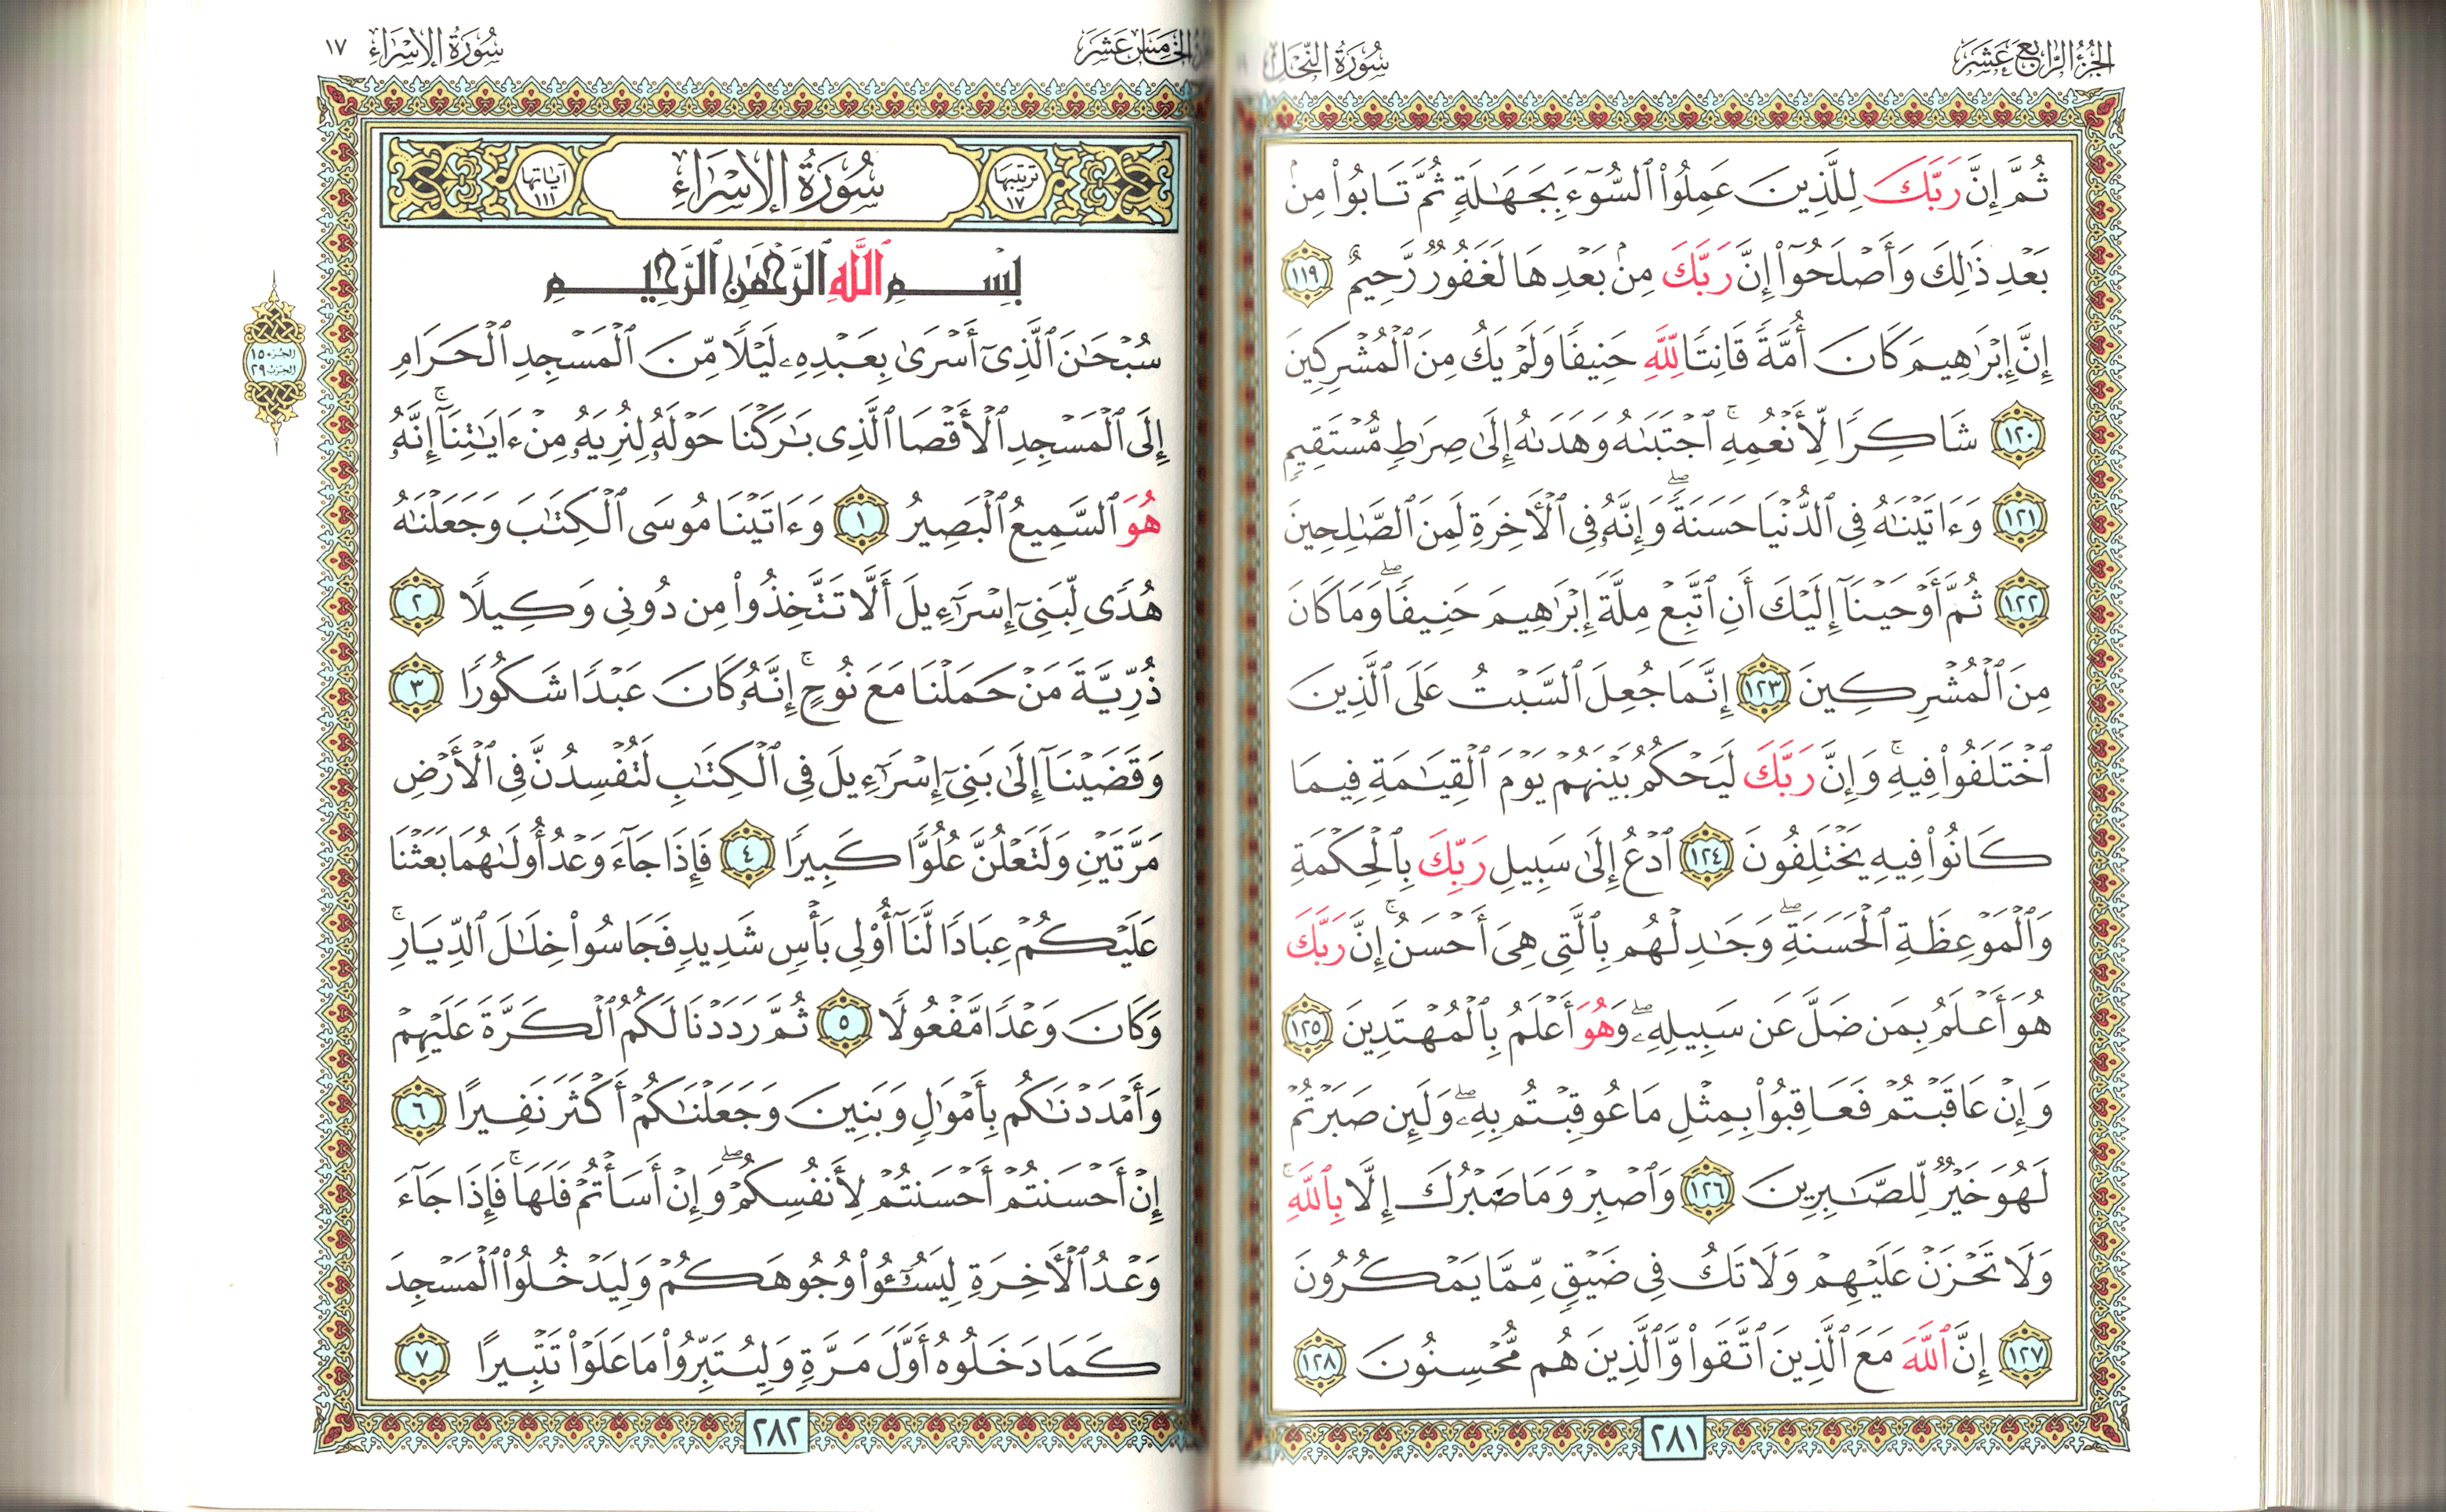 الجزء الرابع عشر
سورة النحل
ثُمَّ إِنَّ رَبَّكَ لِلَّذِينَ عَمِلُوا۟ ٱلسُّوٓءَ بِجَهَٰلَةٍ ثُمَّ تَابُوا۟ مِنۢ
بَعْدِ ذَٰلِكَ وَأَصْلَحُوٓا۟ إِنَّ رَبَّكَ مِنۢ بَعْدِهَا لَغَفُورٌ رَّحِيمٌ ١١٩
إِنَّ إِبْرَٰهِيمَ كَانَ أُمَّةً قَانِتًا لِّلَّهِ حَنِيفًا وَلَمْ يَكُ مِنَ ٱلْمُشْرِكِينَ
١٢٠ شَاكِرًا لِّأَنْعُمِهِ ۚ ٱجْتَبَىٰهُ وَهَدَىٰهُ إِلَىٰ صِرَٰطٍ مُّسْتَقِيمٍ
١٢١ وَءَاتَيْنَٰهُ فِى ٱلدُّنْيَا حَسَنَةً ۖ وَإِنَّهُۥ فِى ٱلْأَخِرَةِ لَمِنَ ٱلصَّٰلِحِينَ
١٢٢ ثُمَّ أَوْحَيْنَآ إِلَيْكَ أَنِ ٱتَّبِعْ مِلَّةَ إِبْرَٰهِيمَ حَنِيفًا ۖ وَمَا كَانَ
مِنَ ٱلْمُشْرِكِينَ ١٢٣ إِنَّمَا جُعِلَ ٱلسَّبْتُ عَلَى ٱلَّذِينَ
ٱخْتَلَفُوا۟ فِيهِ ۚ وَإِنَّ رَبَّكَ لَيَحْكُمُ بَيْنَهُمْ يَوْمَ ٱلْقِيَٰمَةِ فِيمَا
كَانُوا۟ فِيهِ يَخْتَلِفُونَ ١٢٤ ٱدْعُ إِلَىٰ سَبِيلِ رَبِّكَ بِٱلْحِكْمَةِ
وَٱلْمَوْعِظَةِ ٱلْحَسَنَةِ ۖ وَجَٰدِلْهُم بِٱلَّتِى هِىَ أَحْسَنُ ۚ إِنَّ رَبَّكَ
هُوَ أَعْلَمُ بِمَن ضَلَّ عَن سَبِيلِهِۦ ۖ وَهُوَ أَعْلَمُ بِٱلْمُهْتَدِينَ ١٢٥
وَإِنْ عَاقَبْتُمْ فَعَاقِبُوا۟ بِمِثْلِ مَا عُوقِبْتُم بِهِۦ ۖ وَلَئِن صَبَرْتُمْ
لَهُوَ خَيْرٌ لِّلصَّٰبِرِينَ ١٢٦ وَٱصْبِرْ وَمَا صَبْرُكَ إِلَّا بِٱللَّهِ ۚ
وَلَا تَحْزَنْ عَلَيْهِمْ وَلَا تَكُ فِى ضَيْقٍ مِّمَّا يَمْكُرُونَ
١٢٧ إِنَّ ٱللَّهَ مَعَ ٱلَّذِينَ ٱتَّقَوا۟ وَّٱلَّذِينَ هُم مُّحْسِنُونَ ١٢٨
٢٨١
الخامس عشر
سورة الإسراء ١٧
ترتيبها ١٧
سورة الإسراء
آياتها ١١١
بِسْمِ ٱللَّهِ ٱلرَّحْمَٰنِ ٱلرَّحِيمِ
سُبْحَٰنَ ٱلَّذِىٓ أَسْرَىٰ بِعَبْدِهِۦ لَيْلًا مِّنَ ٱلْمَسْجِدِ ٱلْحَرَامِ
إِلَى ٱلْمَسْجِدِ ٱلْأَقْصَا ٱلَّذِى بَٰرَكْنَا حَوْلَهُۥ لِنُرِيَهُۥ مِنْ ءَايَٰتِنَآ ۚ إِنَّهُۥ
هُوَ ٱلسَّمِيعُ ٱلْبَصِيرُ ١ وَءَاتَيْنَا مُوسَى ٱلْكِتَٰبَ وَجَعَلْنَٰهُ
هُدًى لِّبَنِىٓ إِسْرَٰٓءِيلَ أَلَّا تَتَّخِذُوا۟ مِن دُونِى وَكِيلًا ٢
ذُرِّيَّةَ مَنْ حَمَلْنَا مَعَ نُوحٍ ۚ إِنَّهُۥ كَانَ عَبْدًا شَكُورًا ٣
وَقَضَيْنَآ إِلَىٰ بَنِىٓ إِسْرَٰٓءِيلَ فِى ٱلْكِتَٰبِ لَتُفْسِدُنَّ فِى ٱلْأَرْضِ
مَرَّتَيْنِ وَلَتَعْلُنَّ عُلُوًّا كَبِيرًا ٤ فَإِذَا جَآءَ وَعْدُ أُولَىٰهُمَا بَعَثْنَا
عَلَيْكُمْ عِبَادًا لَّنَآ أُو۟لِى بَأْسٍ شَدِيدٍ فَجَاسُوا۟ خِلَٰلَ ٱلدِّيَارِ ۚ
وَكَانَ وَعْدًا مَّفْعُولًا ٥ ثُمَّ رَدَدْنَا لَكُمُ ٱلْكَرَّةَ عَلَيْهِمْ
وَأَمْدَدْنَٰكُم بِأَمْوَٰلٍ وَبَنِينَ وَجَعَلْنَٰكُمْ أَكْثَرَ نَفِيرًا ٦
إِنْ أَحْسَنتُمْ أَحْسَنتُمْ لِأَنفُسِكُمْ ۖ وَإِنْ أَسَأْتُمْ فَلَهَا ۚ فَإِذَا جَآءَ
وَعْدُ ٱلْأَخِرَةِ لِيَسُۥٓـُٔوا۟ وُجُوهَكُمْ وَلِيَدْخُلُوا۟ ٱلْمَسْجِدَ
كَمَا دَخَلُوهُ أَوَّلَ مَرَّةٍ وَلِيُتَبِّرُوا۟ مَا عَلَوْا۟ تَتْبِيرًا ٧
الجزء ١٥
الحزب ٢٩
٢٨٢